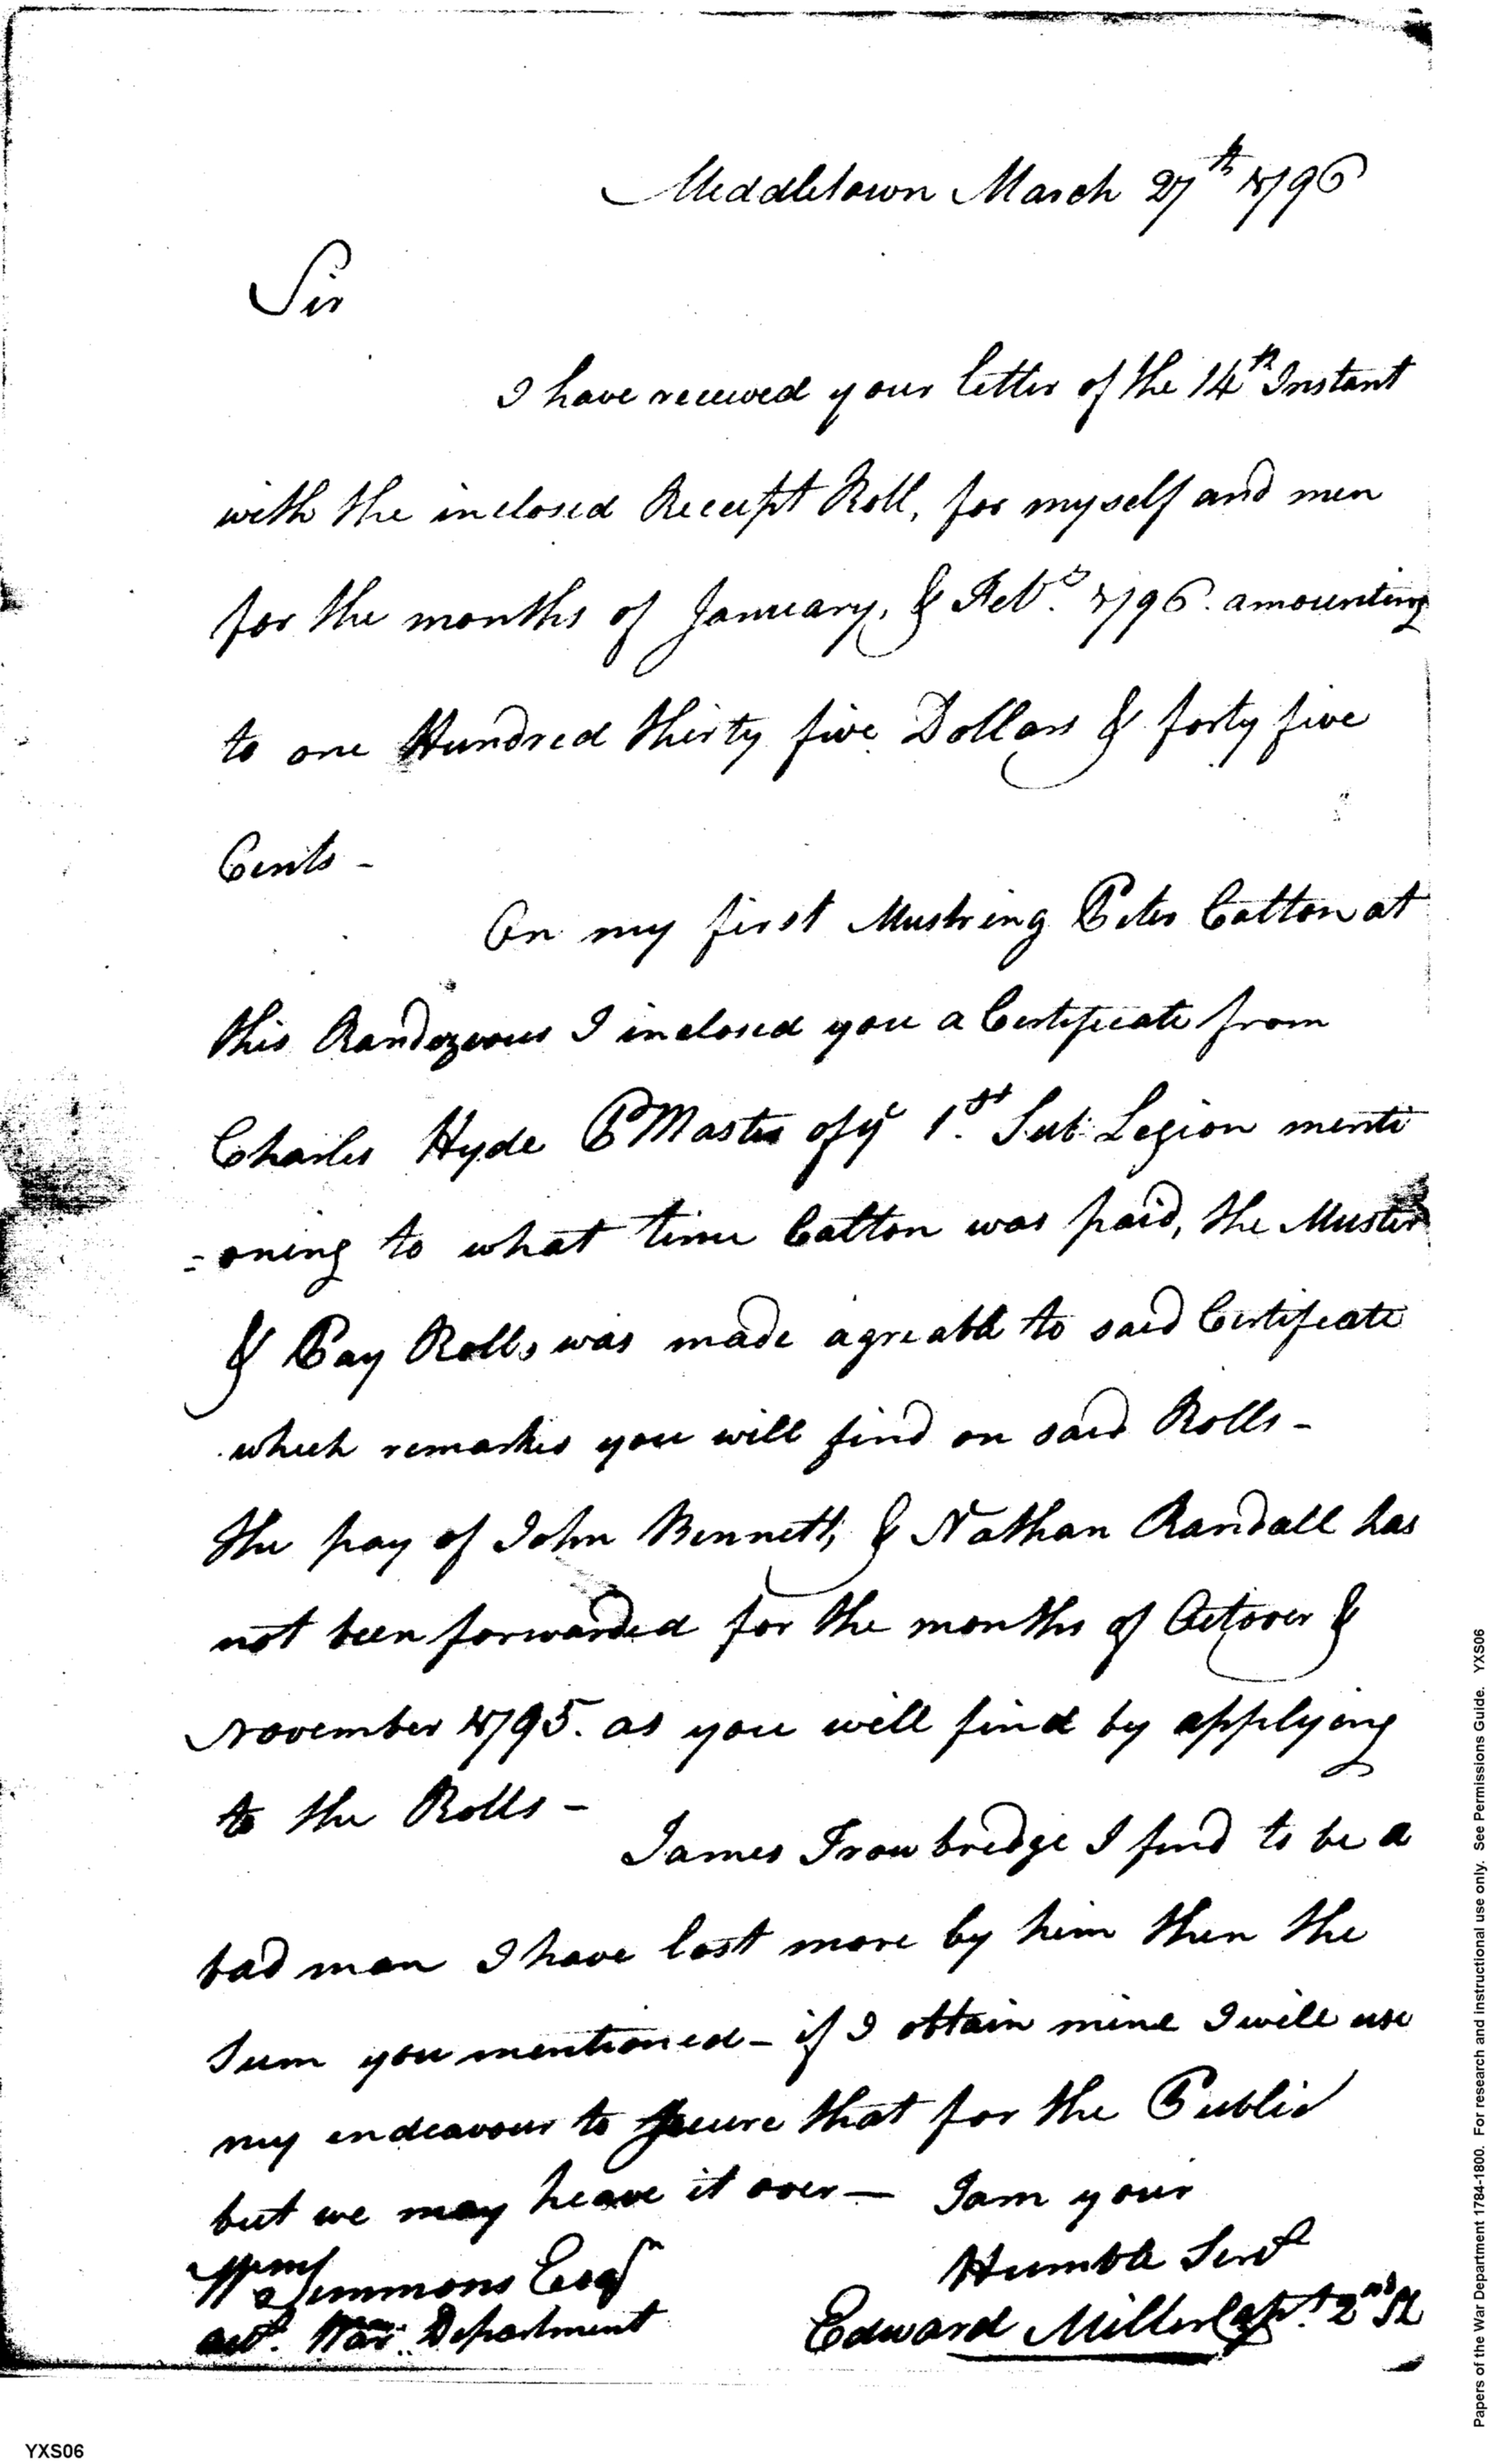 Middletown March 27th 1796
Sir
I have received your letter of the 14th Instant
with the inclosed Receipt Roll, for myself and men
for the months of January, & Feby. 1796. amounting
to one Hundred thirty five Dollars & forty five
Cents -
On my first Mustring Peter Catton at
this Randezvous I inclosed you a Certificate from
Charles Hyde PMaster of ye 1st. Sub Legion menti
= oning to what time Catton was paid, the Muster
& Pay Rolls was made agreable to said Certificate
which remarkes you will find on said Rolls -
the pay of John Bennett, & Nathan Randall has
not been forwarded for the months of October &
November 1795. as you will find by applying
to the Rolls -
James Trowbridge I find to be a
bad man I have lost more by him then the
Sum you mentioned - if I obtain mine I will use
my endeavour to secure that for the Public
but we may heave it over — I am your
Humble Servt
Wm Simmons Esqr
Edward Miller Capt. 2nd SL
acct. War Department
Papers of the War Department 1784-1800. For research and instructional use only. See Permissions Guide. YXS06
YXS06